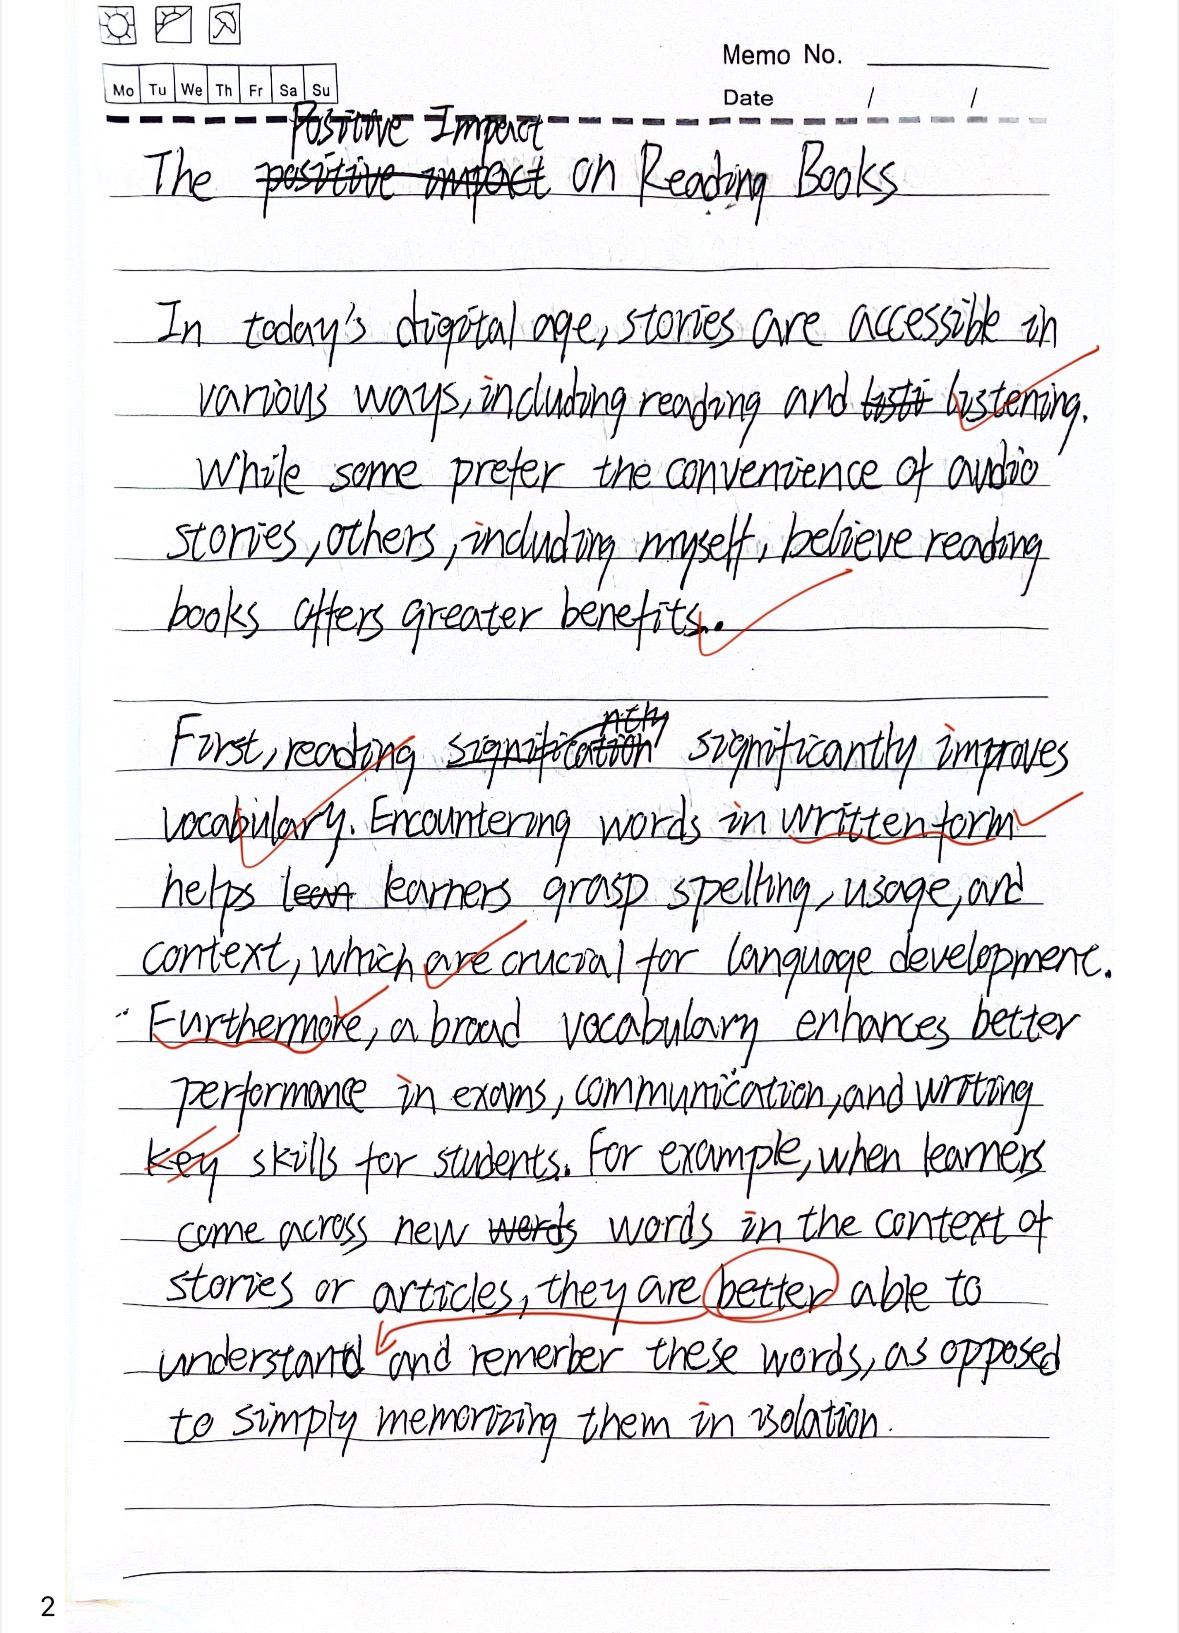 Memo No.
Mo Tu We Th Fr Sa Su
Date / /
Positive Impact
The positive impact on Reading Books
In today's digital age, stories are accessible in
various ways, including reading and listi listening.
While some prefer the convenience of audio
stories, others, including myself, believe reading
books offers greater benefits..
First, reading significantly improves
vocabulary. Encountering words in written form
helps lean learners grasp spelling, usage, and
context, which are crucial for language development.
Furthermore, a broad vocabulary enhances better
performance in exams, communication, and writing
key skills for students. For example, when learners
come across new words words in the context of
stories or articles, they are better able to
understand and remerber these words, as opposed
to simply memorizing them in isolation.
2